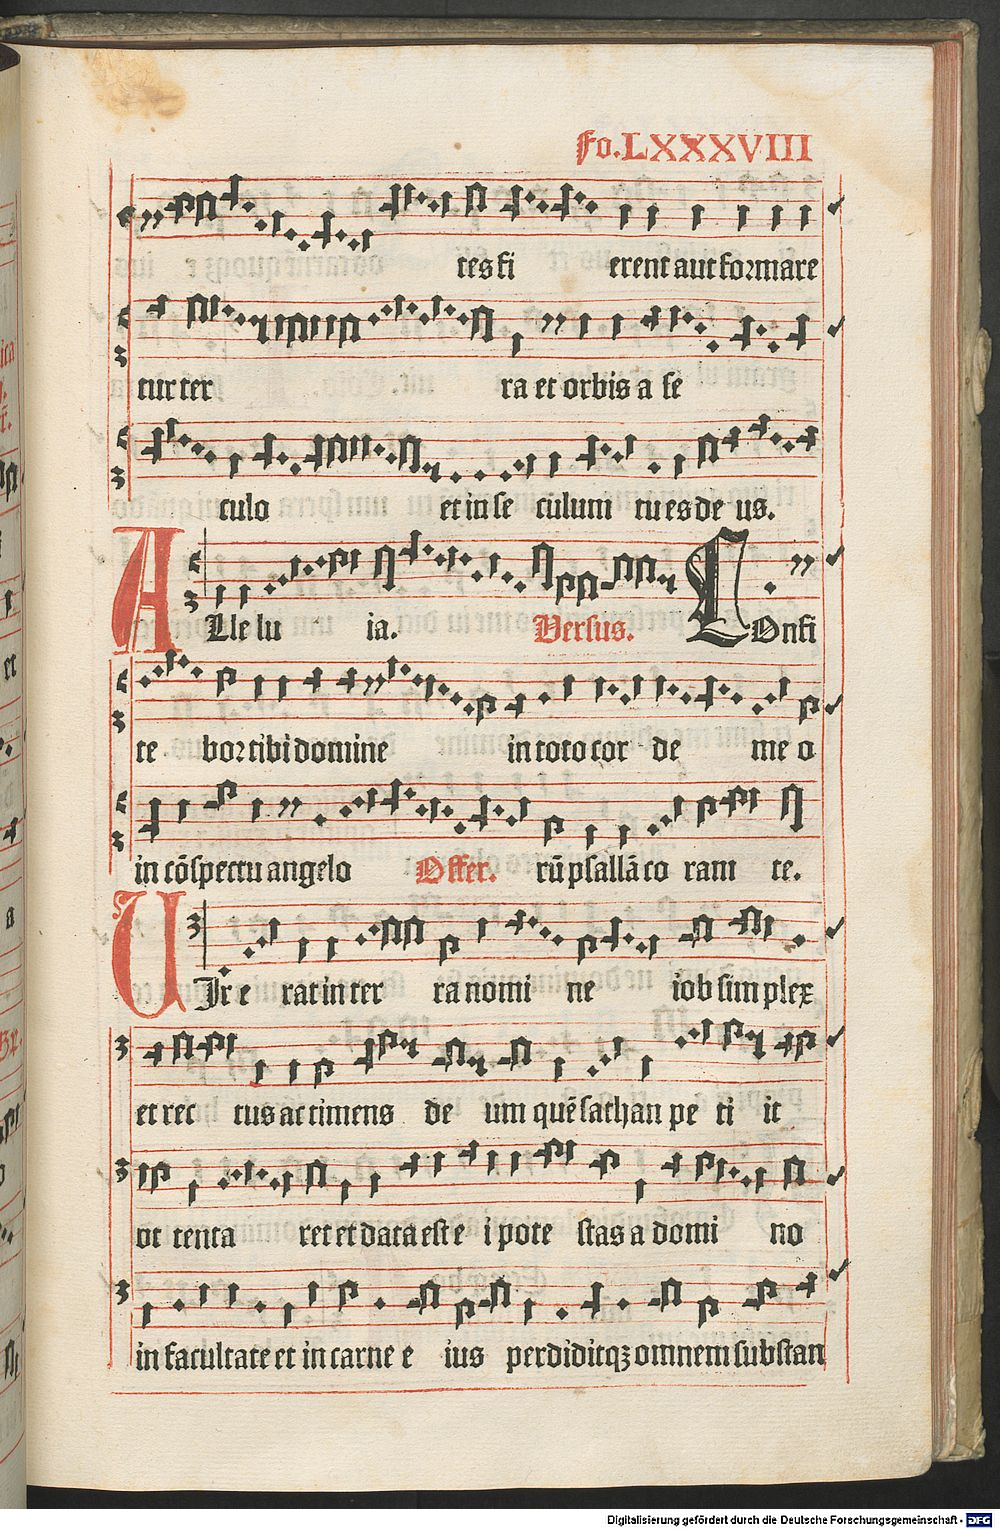 Fo.LXXXVIII
tes fi erent aut formare
tur ter ra et orbis a se
culo et in se culum tu es de us.
ALle lu ia. Versus. COnfi
te bor tibi domine in toto cor de me o
in cōspectu angelo Offer. rū psallā co ram te.
UIr e rat in ter ra nomi ne iob simplex
et rec tus ac timens de um quē sathan pe ti it
vt tenta ret et data est e i pote stas a domi no
in facultate et in carne e ius perdiditqz omnem substan
Digitalisierung gefördert durch die Deutsche Forschungsgemeinschaft - DFG